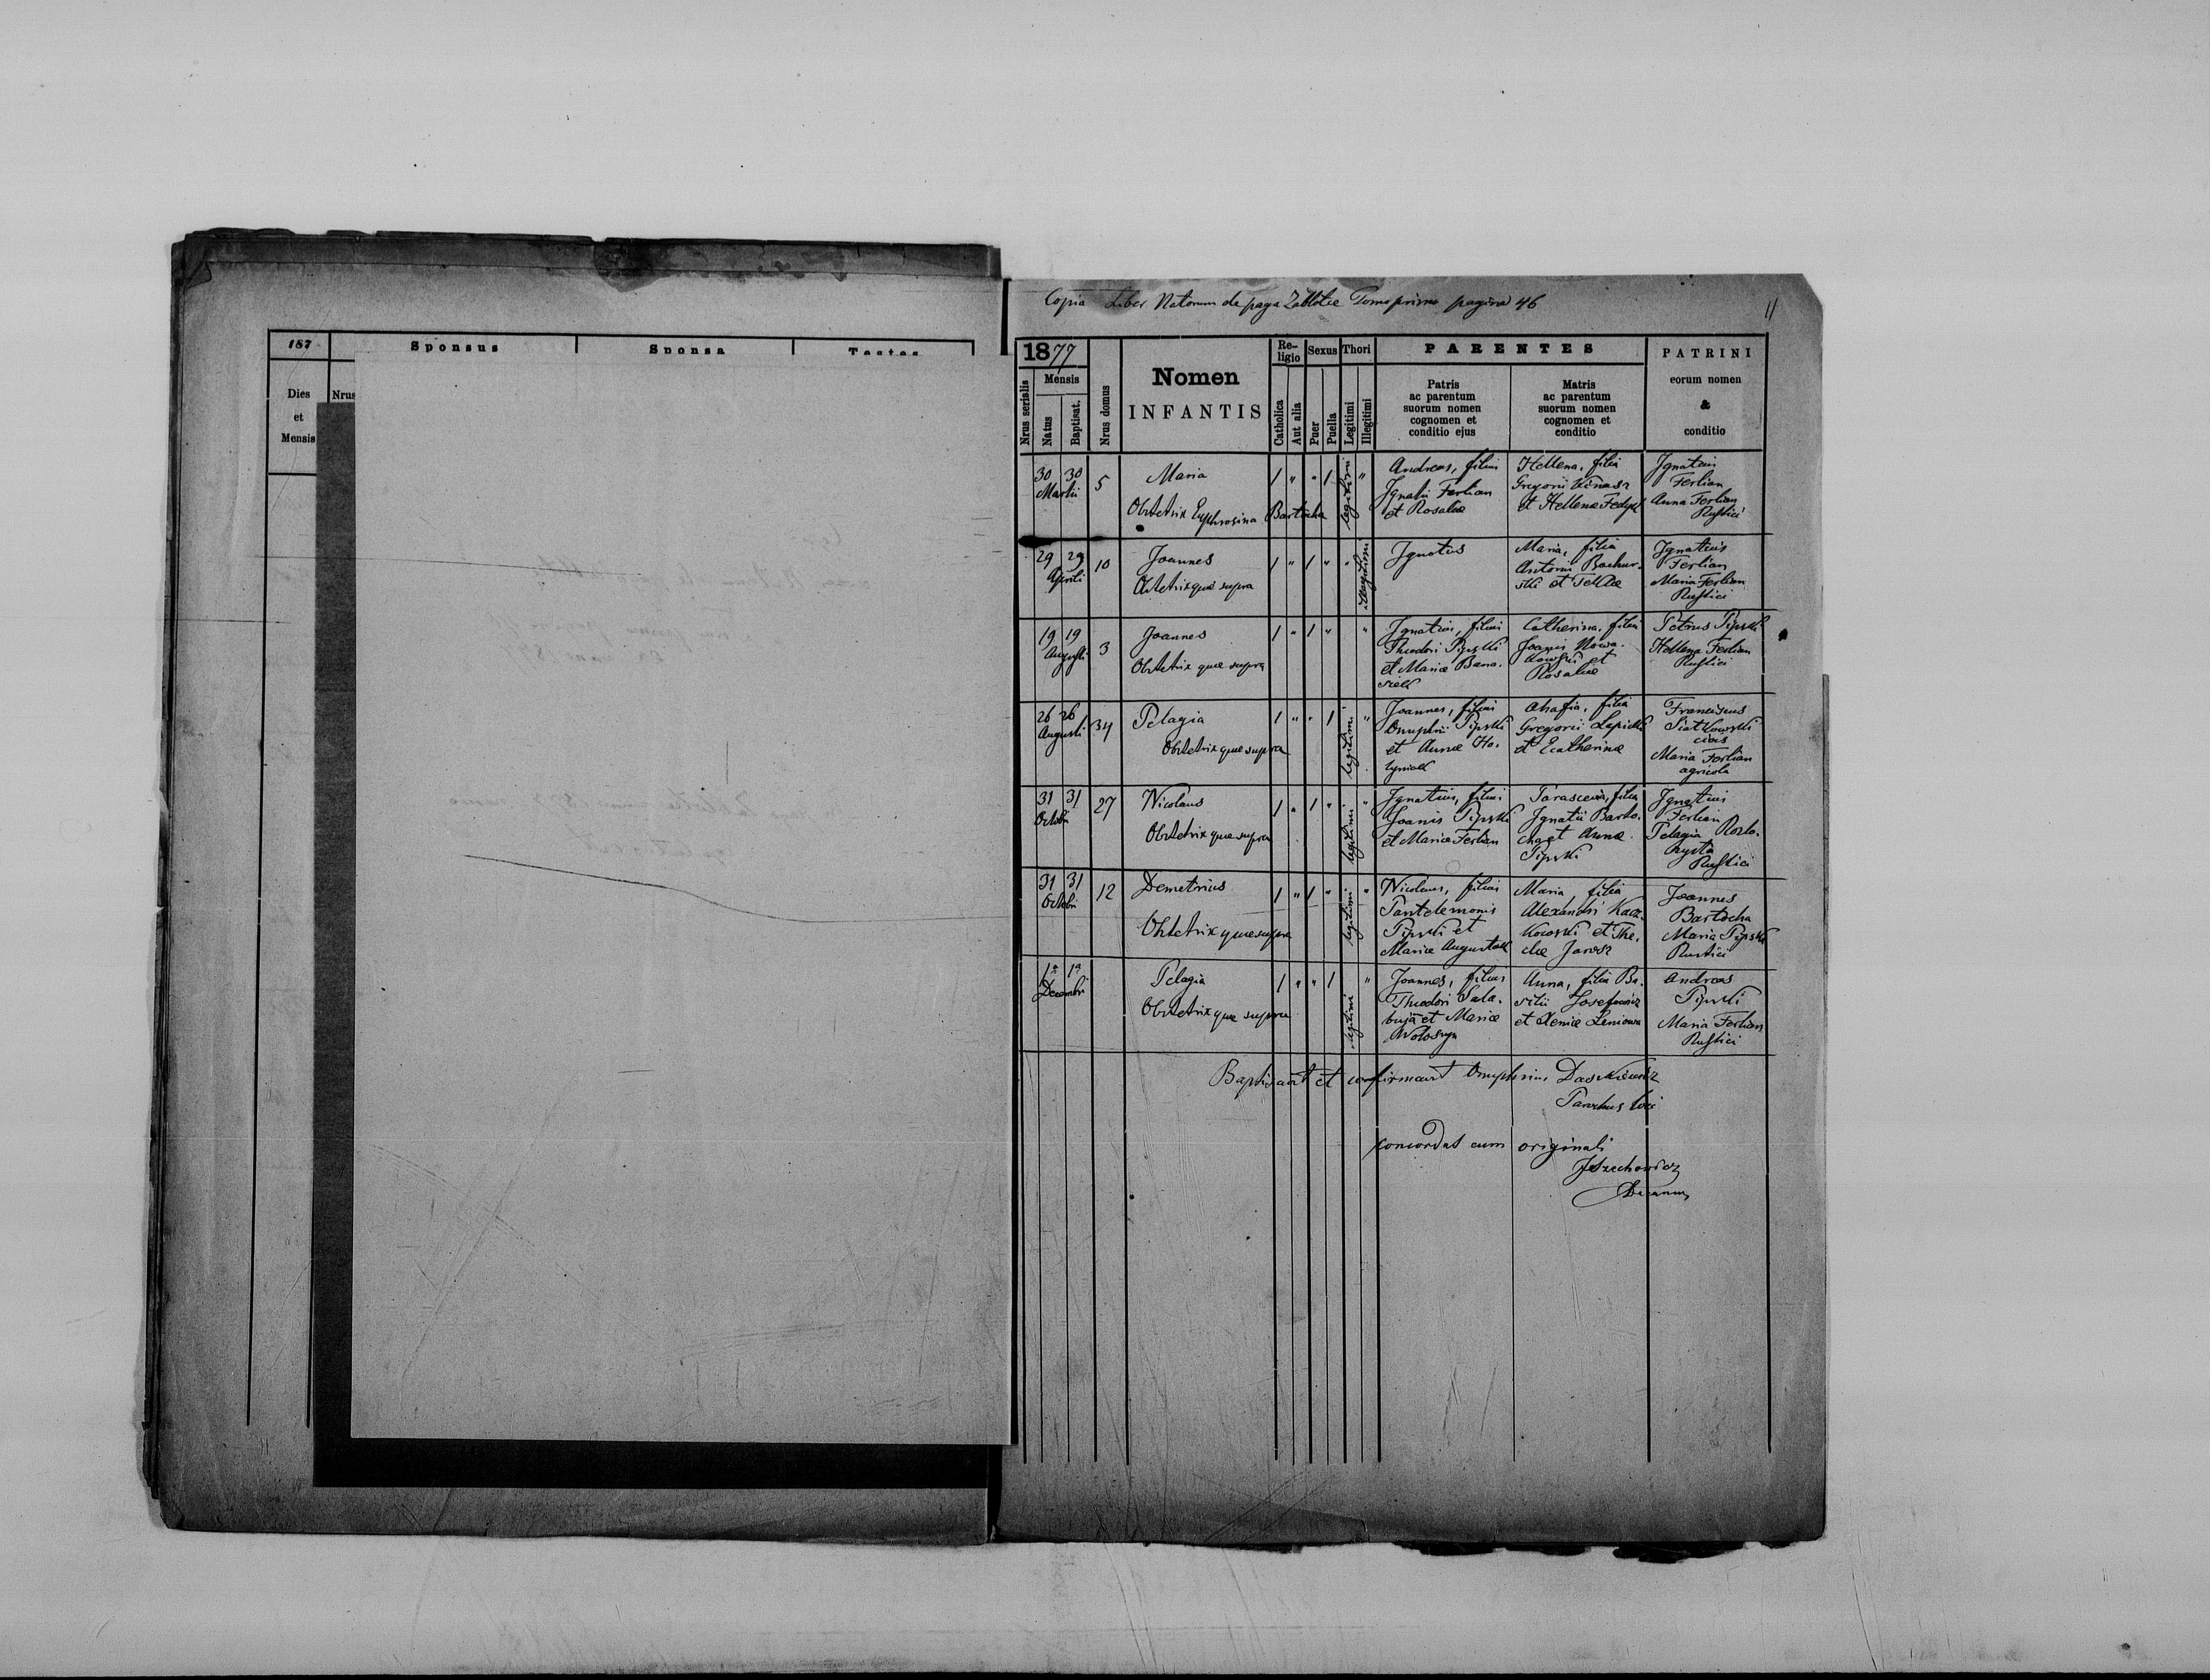 187
Sponsus
Sponsa
Testes
Dies
et
Mensis
Nrus
Copia Liber Natorum de pago Zabłotce Tomo primo pagina 46
11
1877
Mensis
Nrus serialis
Natus
Baptisat.
Nrus domus
Nomen
INFANTIS
Religio
Catholica
Aut alia
Sexus
Puer
Puella
Thori
Legitimi
Illegitimi
PARENTES
Patris
ac parentum
suorum nomen
cognomen et
conditio ejus
Matris
ac parentum
suorum nomen
cognomen et
conditio
PATRINI
eorum nomen
&
conditio
30 30
Martii
5
Maria
Obstetrix Euphrosina Bartocha
1 " " 1 legitimi "
Andreas, filius
Ignatii Ferlian
et Rosaliæ
Hellena, filia
Gregorii
et Hellenæ
Ignatius
Ferlian
Anna Ferlian
Rustici
29 29
Aprili
10
Joannes
Obstetrix quæ supra
1 " 1 " " illegitimi
Ignatius
Maria, filia
Antonii Bachur-
ski et Teklæ
Ignatius
Ferlian
Maria Ferlian
Rustici
19 19
Augusti
3
Joannes
Obstetrix quæ supra
1 " 1 " "
Ignatius, filius
Theodori Pipski
et Mariæ Bana-
Catherina, filia
Joannis Nowa-
kowski et
Rosaliæ
Petrus Pipski
Hellena Ferlian
Rustici
26 26
Augusti
34
Pelagia
Obstetrix quæ supra
1 " " 1 legitimi "
Joannes, filius
Onuphrii Pipski
et Annæ Ho-
Ahafia, filia
Gregorii Lepicki
et Ecatherinæ
Franciscus
Siatkowski
civis
Maria Ferlian
agricola
31 31
Octobri
27
Nicolaus
Obstetrix quæ supra
1 " 1 " legitimi "
Ignatius, filius
Joanis Pipski
et Mariæ Ferlian
Parascevia, filia
Ignatii Barto-
cha et Annæ
Pipski
Ignatius
Ferlian
Pelagia
Rustici
31 31
Octobri
12
Demetrius
Obstetrix quæ supra
1 " 1 " legitimi "
Nicolaus, filius
Pantelemonis
Pipski et
Mariæ Augustak
Maria, filia
Alexandri Kacz-
kowski et The-
clæ Jarosz
Joannes
Bartocha
Maria Pipski
Rustici
1a 1a
Decembri
Pelagia
Obstetrix quæ supra
1 " " 1 legitimi "
Joannes, filius
Theodori Sala-
buja et Mariæ
Wołoszyn
Anna, filia Ba-
silii Josefowicz
et Xeniæ
Andreas
Pipski
Maria Ferlian
Rustici
Baptisavit et confirmavit Onuphrius Daszkiewicz
Parochus loci
concordat cum originali
Decanus